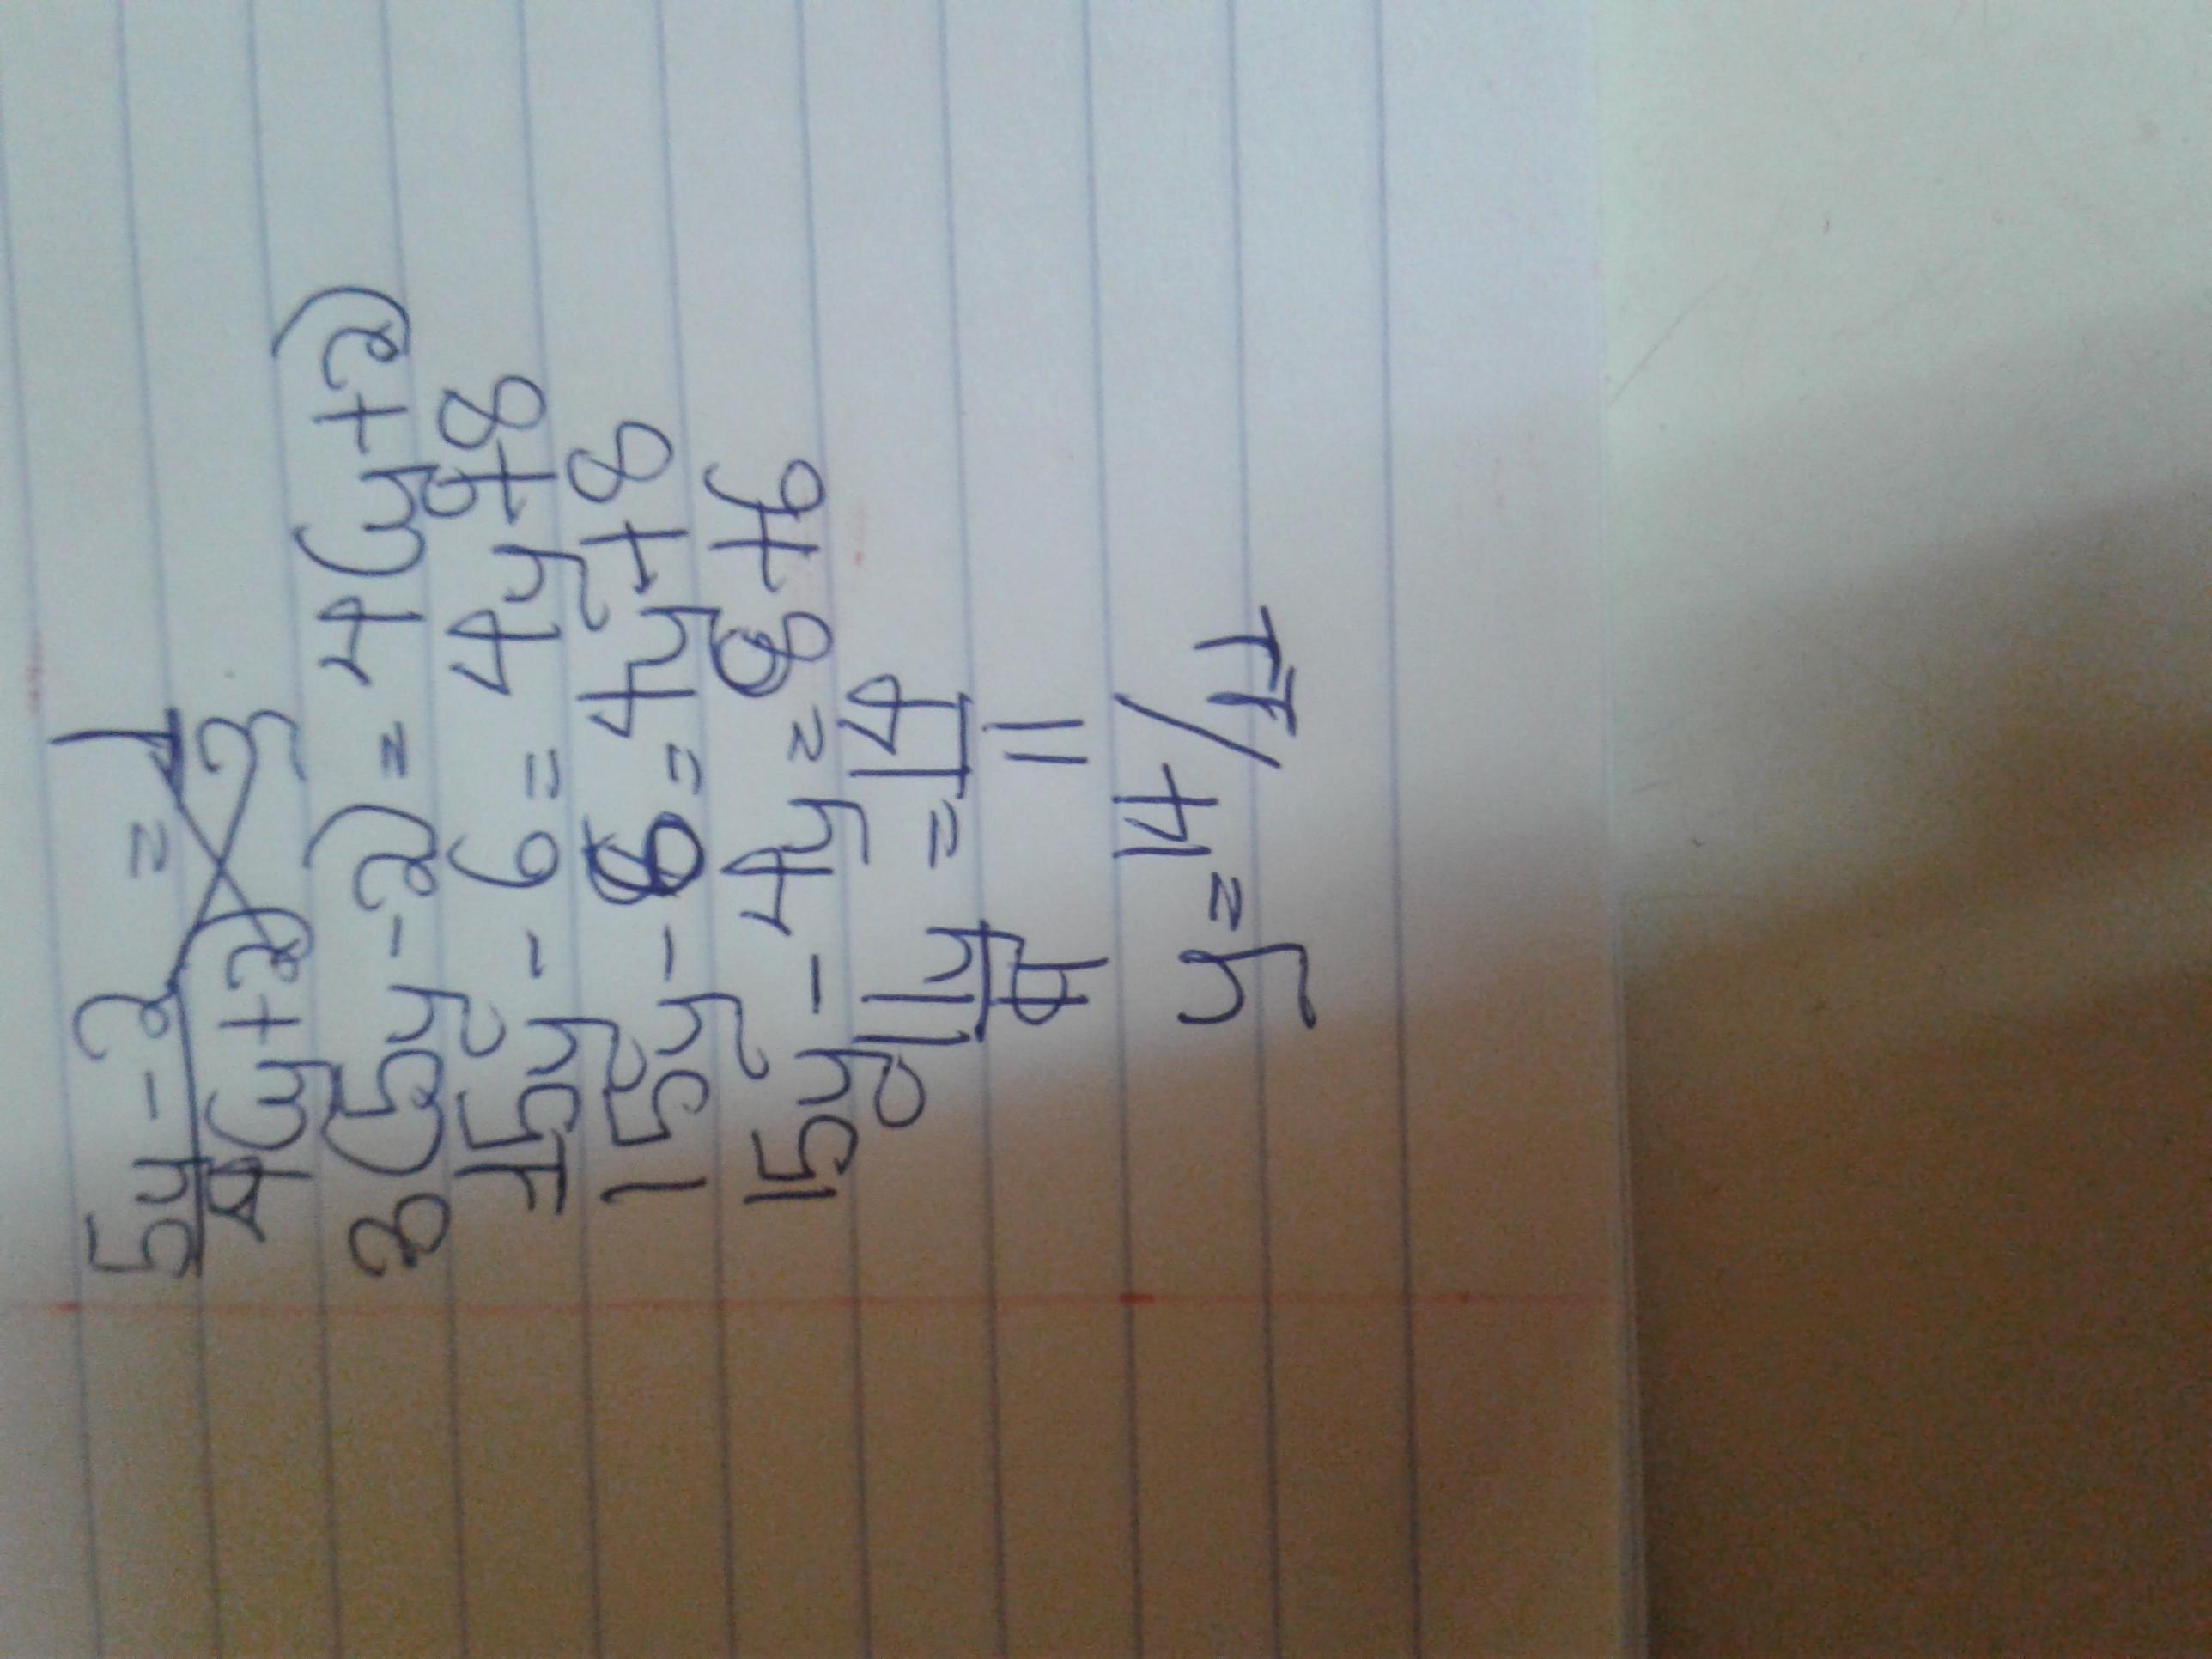 5y-2 = 1
4(y+2) 3
3(5y-2) = 4(y+2)
15y - 6 = 4y+8
15y - 6 = 4y+8
15y - 4y = 8+6
11y = 14
11 11
y = 14/11